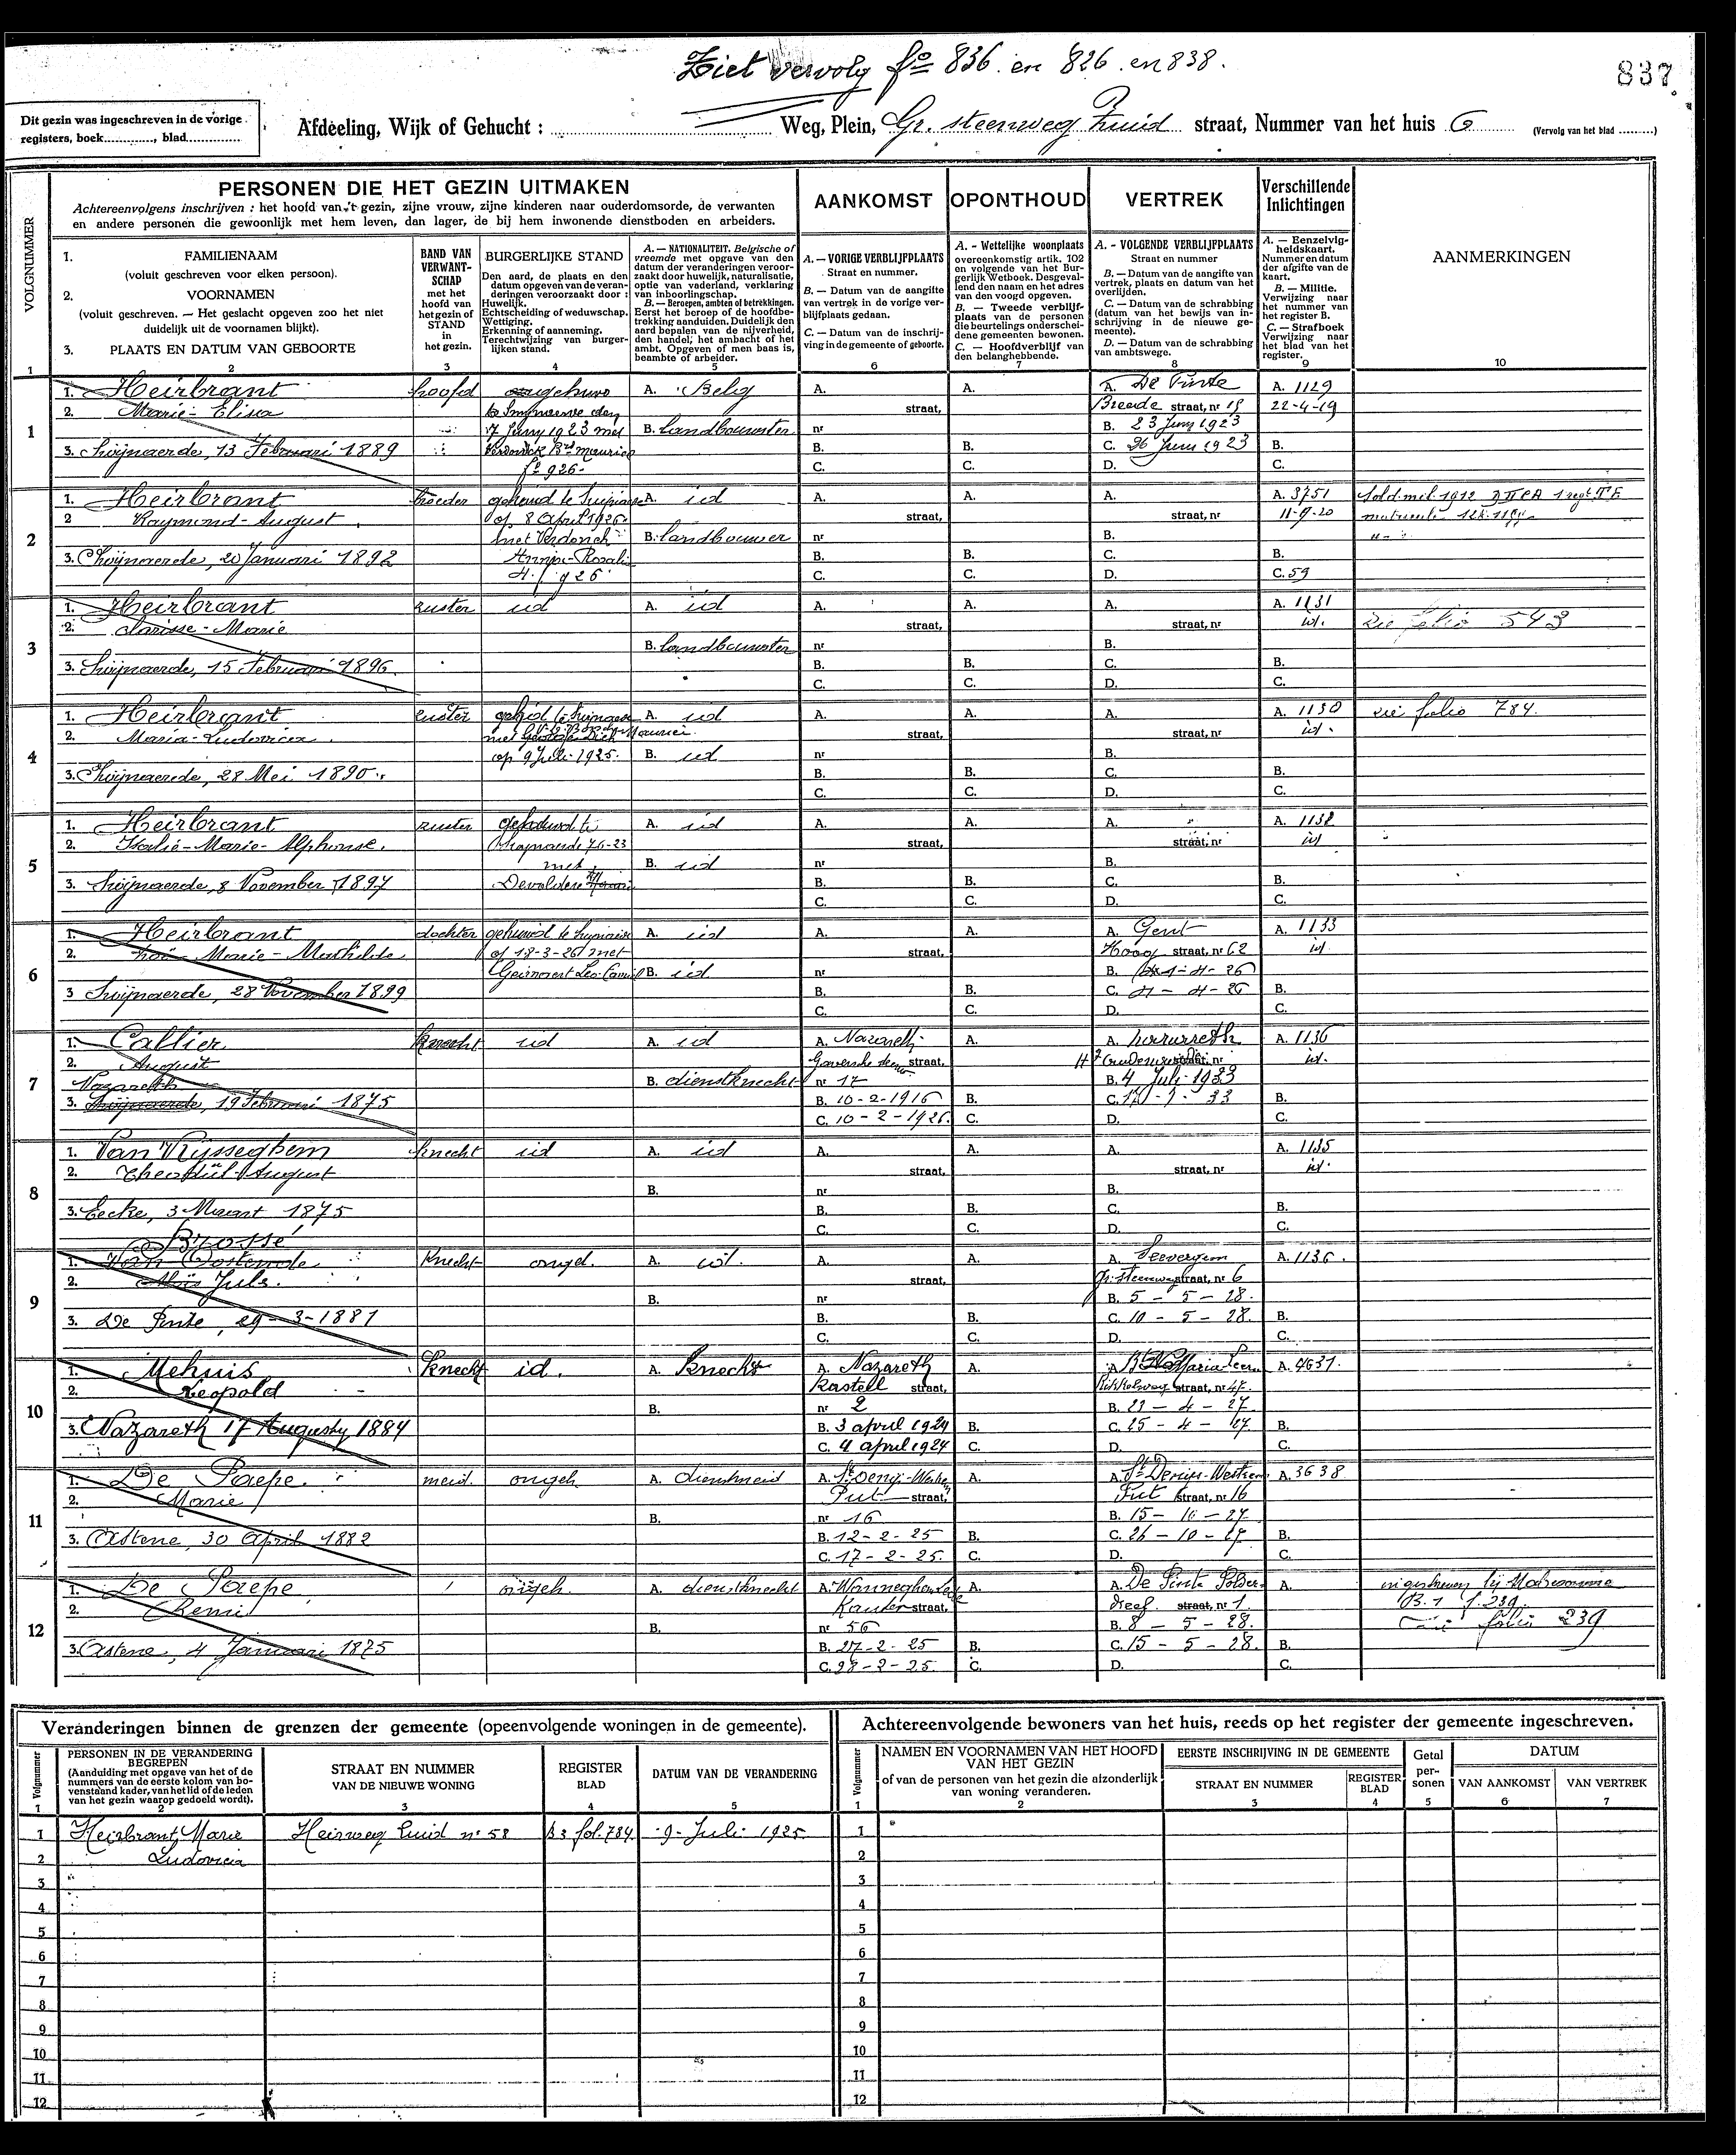 Ziet vervolg fo 836 en 826 en 838.
837
Dit gezin was ingeschreven in de vorige
registers, boek.............., blad...............
Afdeeling, Wijk of Gehucht : Weg, Plein, Gr. steenweg Zuid straat, Nummer van het huis 6 (Vervolg van het blad .........)
VOLGNUMMER
PERSONEN DIE HET GEZIN UITMAKEN
Achtereenvolgens inschrijven : het hoofd van 't gezin, zijne vrouw, zijne kinderen naar ouderdomsorde, de verwanten
en andere personen die gewoonlijk met hem leven, dan lager, de bij hem inwonende dienstboden en arbeiders.
AANKOMST
OPONTHOUD
VERTREK
Verschillende
Inlichtingen
1. FAMILIENAAM
(voluit geschreven voor elken persoon).
2. VOORNAMEN
(voluit geschreven. — Het geslacht opgeven zoo het niet
duidelijk uit de voornamen blijkt).
3. PLAATS EN DATUM VAN GEBOORTE
BAND VAN
VERWANT-
SCHAP
met het
hoofd van
het gezin of
STAND
in
het gezin.
BURGERLIJKE STAND
Den aard, de plaats en den
datum opgeven van de veran-
deringen veroorzaakt door :
Huwelijk.
Echtscheiding of weduwschap.
Wettiging.
Erkenning of aanneming.
Terechtwijzing van burger-
lijken stand.
A. — NATIONALITEIT. Belgische of
vreemde met opgave van den
datum der veranderingen veroor-
zaakt door huwelijk, naturalisatie,
optie van vaderland, verklaring
van inboorlingschap.
B. — Beroepen, ambten of betrekkingen.
Eerst het beroep of de hoofdbe-
trekking aanduiden. Duidelijk den
aard bepalen van de nijverheid,
den handel, het ambacht of het
ambt. Opgeven of men baas is,
beambte of arbeider.
A. — VORIGE VERBLIJFPLAATS
Straat en nummer.
B. — Datum van de aangifte
van vertrek in de vorige ver-
blijfplaats gedaan.
C. — Datum van de inschrij-
ving in de gemeente of geboorte.
A. - Wettelijke woonplaats
overeenkomstig artik. 102
en volgende van het Bur-
gerlijk Wetboek. Desgeval-
lend den naam en het adres
van den voogd opgeven.
B. — Tweede verblijf-
plaats van de personen
die beurtelings onderschei-
dene gemeenten bewonen.
C. — Hoofdverblijf van
den belanghebbende.
A. - VOLGENDE VERBLIJFPLAATS
Straat en nummer
B. — Datum van de aangifte van
vertrek, plaats en datum van het
overlijden.
C. — Datum van de schrabbing
(datum van het bewijs van in-
schrijving in de nieuwe ge-
meente).
D. — Datum van de schrabbing
van ambtswege.
A. — Eenzelvig-
heidskaart.
Nummer en datum
der afgifte van de
kaart.
B. — Militie.
Verwijzing naar
het nummer van
het register B.
C. — Strafboek
Verwijzing naar
het blad van het
register.
AANMERKINGEN
1 2 3 4 5 6 7 8 9 10
1
1. Heirbrant hoofd A. Belg A. A. A. De Pinte A. 1129
2. Marie-Elisa straat, Breede straat, nr 22-4-19
7 Juny 1923 met B. landbouwster nr B. 23 Juny 1923
3. Swijnaerde, 13 Februari 1889 Maurice B. B. C. 26 Juni 1923 B.
fo 926. C. C. D. C.
2
1. Heirbrant broeder gehuwd te A. id A. A. A. A. 3751 Sold. mil. 1912
2 Raymond-August op 8 April 1926 straat, straat, nr 11-9-20
met Verdonck B. landbouwer nr B.
3. Swijnaerde, 20 Januari 1892 B. B. C. B.
926 C. C. D. C. 59
3
1. Heirbrant zuster id A. id A. A. A. A. 1131
2. Clarisse-Marie straat, straat, nr id. zie folio 543
B. landbouwster nr B.
3. Swijnaerde, 15 Februari 1896. B. B. C. B.
C. C. D. C.
4
1. Heirbrant zuster A. id A. A. A. A. 1130 zie folio 784.
2. Maria-Ludovica met Maurice straat, straat, nr id.
op 9 Juli 1925. B. id nr B.
3. Swijnaerde, 28 Mei 1890. B. B. C. B.
C. C. D. C.
5
1. Heirbrant zuster gehuwd te A. id A. A. A. A. 1132
2. Marie-Alphonse. straat, straat, nr id
met B. id nr B.
3. Swijnaerde, 8 November 1897 Devoldere B. B. C. B.
C. C. D. C.
6
1. Heirbrant dochter gehuwd te A. id A. A. A. Gent A. 1133
2. Zoë Marie-Mathilde op 18-3-26 met straat, Hoog straat, nr 62 id
Leo-Camiel B. id nr B. 4-26
3 Swijnaerde, 28 November 1899 B. B. C. B.
C. C. D.
7
1. Callier knecht id A. id A. Nazareth A. A. A. 1136
2. August straat. nr id.
Nazareth B. dienstknecht nr 17 B. 4 Juli 1933
3. Swijnaerde, 19 Februari 1875 B. 10-2-1916 B. C. 33 B.
C. 10-2-1926. C. D. C.
8
1. Van Nijsseghem knecht id A. id A. A. A. A. 1135
2. Theophiel August straat, straat, nr id.
B. nr B.
3. Eecke, 3 Maart 1875 B. B. C. B.
C. C. D. C.
Brossé
9
1. Van Oostende knecht ongeh. A. id. A. A. A. Seevergem A. 1136.
2. Aloïs Jules. straat, Gr. steenweg straat, nr 6
B. nr B. 5 - 5 - 28.
3. De Pinte, 29-3-1881 B. B. C. 10 - 5 - 28. B.
C. C. D. C.
10
1. Mehuis knecht id. A. knecht A. Nazareth A. A. Maria Leerne A. 4631.
2. Leopold kasteel straat, straat, nr 47.
B. nr 2 B. 21 - 4 - 27.
3. Nazareth 17 Augusty 1884 B. 3 april 1924 B. C. 25 - 4 - 27. B.
C. 4 april 1924 C. D. C.
11
1. De Paepe. meid. ongeh. A. dienstmeid A. St Denijs-Westrem A. A. St Denijs-Westrem A. 3638
2. Marie Put straat, Put straat, nr 16
B. nr 16 B. 15 - 10 - 27.
3. Astene, 30 April 1882 B. 12-2-25 B. C. 26 - 10 - 27 B.
C. 17-2-25. C. D. C.
12
1. De Paepe ongeh. A. dienstknecht A. A. A. De Pinte Polder A. ingeschreven bij
2. Remi Kouter straat, dreef straat, nr 1. B. 1 f. 239.
B. nr 56 B. 8 - 5 - 28. folio 239
3. Astene, 4 Januari 1875 B. 27-2-25 B. C. 15 - 5 - 28. B.
C. 28-2-25. C. D. C.
Veranderingen binnen de grenzen der gemeente (opeenvolgende woningen in de gemeente).
Volgnummer
PERSONEN IN DE VERANDERING
BEGREPEN
(Aanduiding met opgave van het of de
nummers van de eerste kolom van bo-
venstaand kader, van het lid of de leden
van het gezin waarop gedoeld wordt).
STRAAT EN NUMMER
VAN DE NIEUWE WONING
REGISTER
BLAD
DATUM VAN DE VERANDERING
1 2 3 4 5
1 Heirbrant Marie Heirweg Zuid nr 58 B3 fol. 784 9 Juli 1925.
2 Ludovica
3
4
5
6
7
8
9
10
11
12
Achtereenvolgende bewoners van het huis, reeds op het register der gemeente ingeschreven.
Volgnummer
NAMEN EN VOORNAMEN VAN HET HOOFD
VAN HET GEZIN
of van de personen van het gezin die afzonderlijk
van woning veranderen.
EERSTE INSCHRIJVING IN DE GEMEENTE
STRAAT EN NUMMER
REGISTER
BLAD
Getal
per-
sonen
DATUM
VAN AANKOMST
VAN VERTREK
1 2 3 4 5 6 7
1
2
3
4
5
6
7
8
9
10
11
12